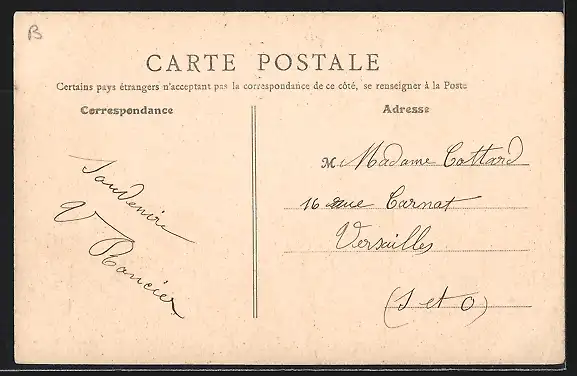 B
CARTE POSTALE
Certains pays étrangers n'acceptant pas la correspondance de ce côté, se renseigner à la Poste
Correspondance
Souvenir
V Rancier
Adresse
M Madame Cottard
16 rue Carnot
Versailles
(S et O)